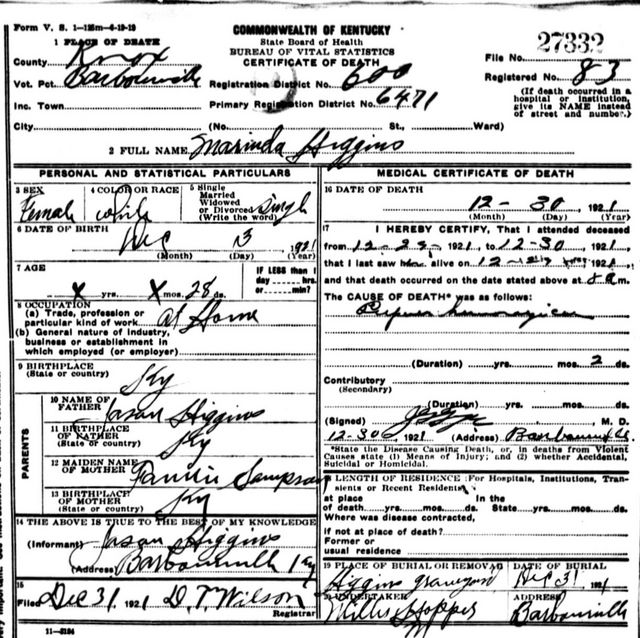 Form V. S. 1-125m-6-19-19
COMMONWEALTH OF KENTUCKY
State Board of Health
BUREAU OF VITAL STATISTICS
CERTIFICATE OF DEATH
1 PLACE OF DEATH
County Knox
File No. 27332
Vot. Pct. Barbourville
Registration District No. 600
Registered No. 83
Inc. Town
Primary Registration District No. 6471
(If death occurred in a
hospital or institution,
give its NAME instead
of street and number.)
City (No. St., Ward)
2 FULL NAME Marinda Higgins
PERSONAL AND STATISTICAL PARTICULARS
3 SEX Female
4 COLOR OR RACE white
5 Single
Married
Widowed
or Divorced Singl
(Write the word)
6 DATE OF BIRTH
Dec 3 1921
(Month) (Day) (Year)
7 AGE
X yrs. X mos. 28 ds.
IF LESS than 1
day hrs.
or min?
8 OCCUPATION
(a) Trade, profession or
particular kind of work at Home
(b) General nature of industry,
business or establishment in
which employed (or employer)
9 BIRTHPLACE
(State or country) Ky
PARENTS
10 NAME OF
FATHER Jason Higgins
11 BIRTHPLACE
OF FATHER
(State or country) Ky
12 MAIDEN NAME
OF MOTHER Fannie Sampson
13 BIRTHPLACE
OF MOTHER
(State or country) Ky
14 THE ABOVE IS TRUE TO THE BEST OF MY KNOWLEDGE
(Informant) Jason Higgins
(Address) Barbourville Ky
15
Filed Dec 31, 1921 D. T. Wilson
Registrar
11-3184
MEDICAL CERTIFICATE OF DEATH
16 DATE OF DEATH
12 - 30, 1921
(Month) (Day) (Year)
17 I HEREBY CERTIFY, That I attended deceased
from 12-29-1921, to 12-30, 1921,
that I last saw h alive on 12
and that death occurred on the date stated above at 8 a m.
The CAUSE OF DEATH* was as follows:
(Duration) yrs. mos. 2 ds.
Contributory
(Secondary)
(Duration) yrs. mos. ds.
(Signed) , M. D.
12-30, 1921 (Address)
*State the Disease Causing Death, or, in deaths from Violent
Causes state (1) Means of Injury; and (2) whether Accidental,
Suicidal or Homicidal.
LENGTH OF RESIDENCE (For Hospitals, Institutions, Tran-
sients or Recent Residents)
at place In the
of death yrs. mos. ds. State yrs. mos. ds.
Where was disease contracted,
if not at place of death?
Former or
usual residence
19 PLACE OF BURIAL OR REMOVAL
Higgins graveyard
DATE OF BURIAL
Dec 31, 1921
UNDERTAKER
Willis Hopper
ADDRESS
Barbourville